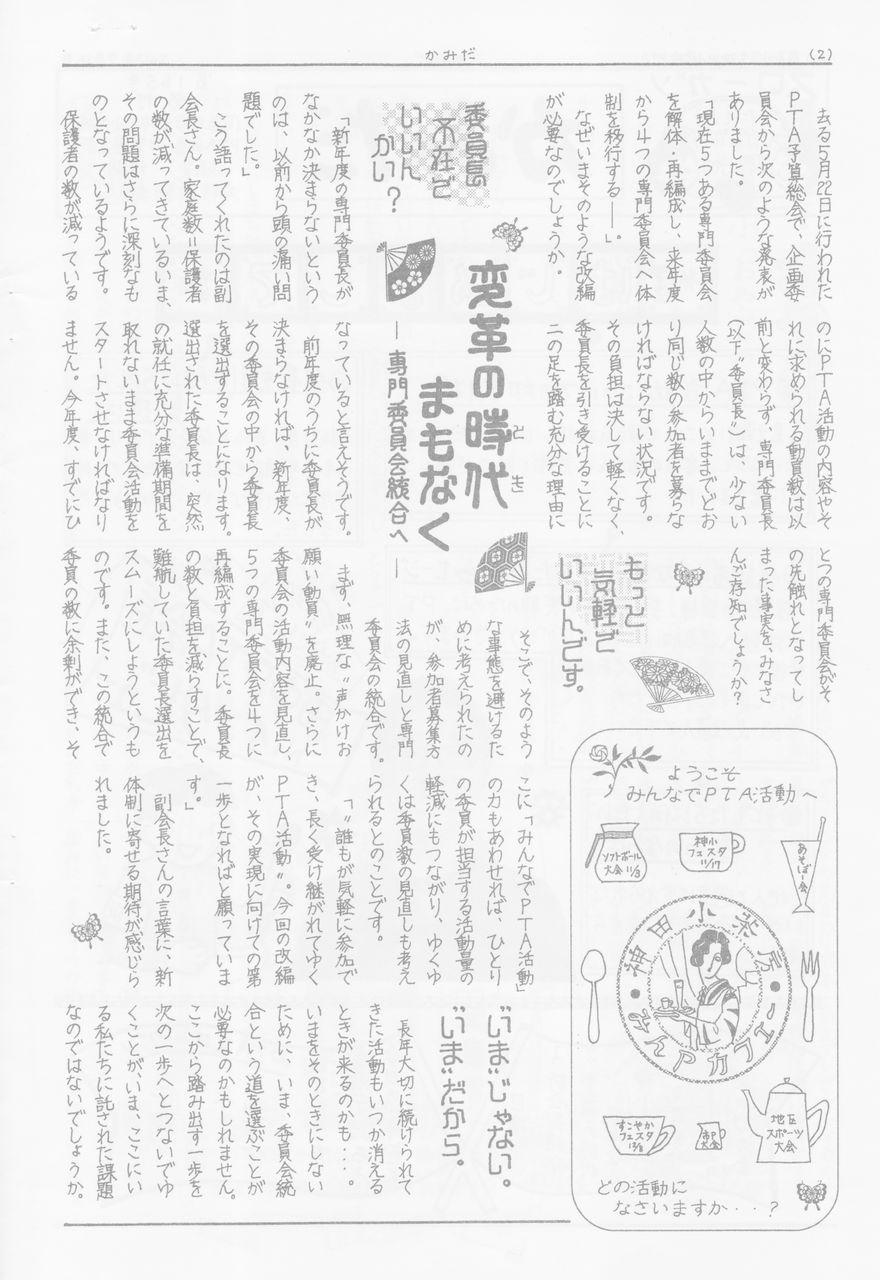 かみだ
(2)
変革の時代
とき
まもなく
― 専門委員会統合へ ―
去る5月22日に行われた
PTA予算総会で、企画委
員会から次のような発表が
ありました。
「現在5つある専門委員会
を解体・再編成し、来年度
から4つの専門委員会へ体
制を移行する――」。
なぜいまそのような改編
が必要なのでしょうか。
委員長
不在で
いいん
かい?
「新年度の専門委員長が
なかなか決まらないという
のは、以前から頭の痛い問
題でした。」
こう語ってくれたのは副
会長さん。家庭数=保護者
の数が減ってきているいま、
その問題はさらに深刻なも
のとなっているようです。
保護者の数が減っている
のにPTA活動の内容やそ
れに求められる動員数は以
前と変わらず、専門委員長
(以下〝委員長〟)は、少ない
人数の中からいままでどお
り同じ数の参加者を募らな
ければならない状況です。
その負担は決して軽くなく、
委員長を引き受けることに
二の足を踏む充分な理由に
なっていると言えそうです。
前年度のうちに委員長が
決まらなければ、新年度、
その委員会の中から委員長
を選出することになります。
選出された委員長は、突然
の就任に充分な準備期間を
取れないまま委員会活動を
スタートさせなければなり
ません。今年度、すでにひ
とつの専門委員会がそ
の先触れとなってし
まった事実を、みなさ
んご存知でしょうか?
もっと
気軽で
いいんです。
そこで、そのよう
な事態を避けるた
めに考えられたの
が、参加者募集方
法の見直しと専門
委員会の統合です。
まず、無理な〝声かけお
願い動員〟を廃止。さらに
委員会の活動内容を見直し、
5つの専門委員会を4つに
再編成することに。委員長
の数と負担を減らすことで、
難航していた委員長選出を
スムーズにしようというも
のです。また、この統合で
委員の数に余剰ができ、そ
こに「みんなでPTA活動」
の力もあわせれば、ひとり
の委員が担当する活動量の
軽減にもつながり、ゆくゆ
くは委員数の見直しも考え
られるとのことです。
「〝誰もが気軽に参加で
き、長く受け継がれてゆく
PTA活動〟。今回の改編
が、その実現に向けての第
一歩となればと願っていま
す。」
副会長さんの言葉に、新
体制に寄せる期待が感じら
れました。
〝いま〟じゃない。
〝いま〟だから。
長年大切に続けられて
きた活動もいつか消える
ときが来るのかも・・・。
いまをそのときにしない
ために、いま、委員会統
合という道を選ぶことが
必要なのかもしれません。
ここから踏み出す一歩を
次の一歩へとつないでゆ
くことが、いま、ここにい
る私たちに託された課題
なのではないでしょうか。
ようこそ
みんなでPTA活動へ
ソフトボール
大会 11/3
神小
フェスタ
11/17
あそぼー会
神田小茶房
みんPカフェー
すこやか
フェスタ
12/8
市P
大会
地区
スポーツ
大会
どの活動に
なさいますか・・?